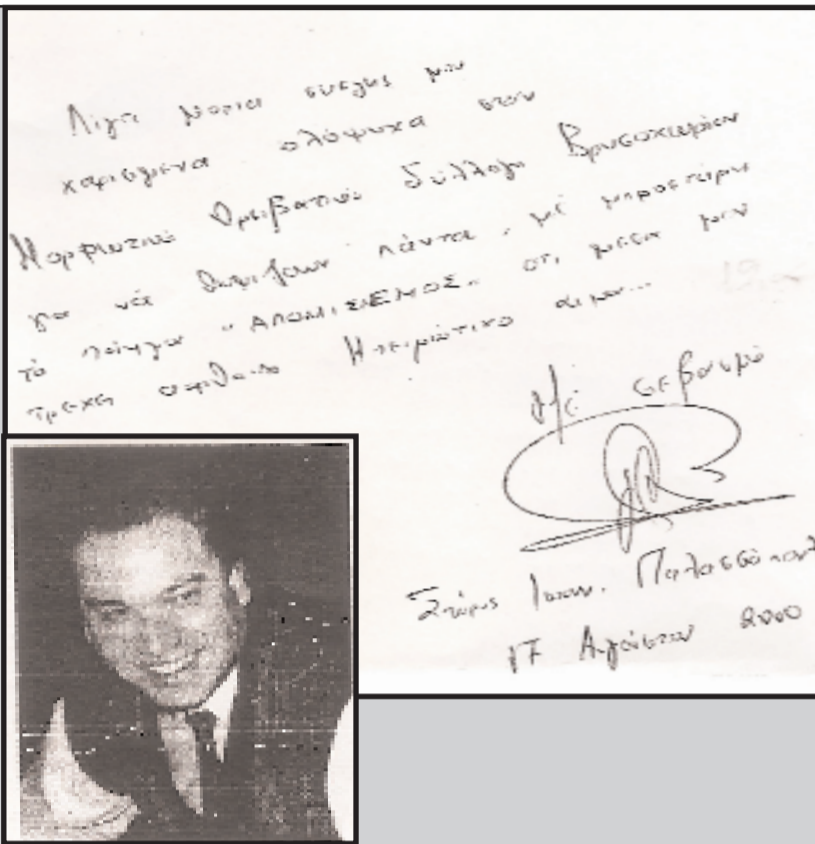 Λίγα λόγια ψυχής μου
χαρισμένα ολόψυχα στον
Μορφωτικό Ορειβατικό Σύλλογο Βρυσοχωρίου
για νά θυμίζουν πάντα, μέ
τό ποίημα "ΑΠΟΛΙΣΜΟΣ" ότι μέσα μου
τρέχει Ηπειρώτικο αίμα...
Μέ σεβασμό
Σπύρος Ιωαν.
17 Αυγούστου 2000